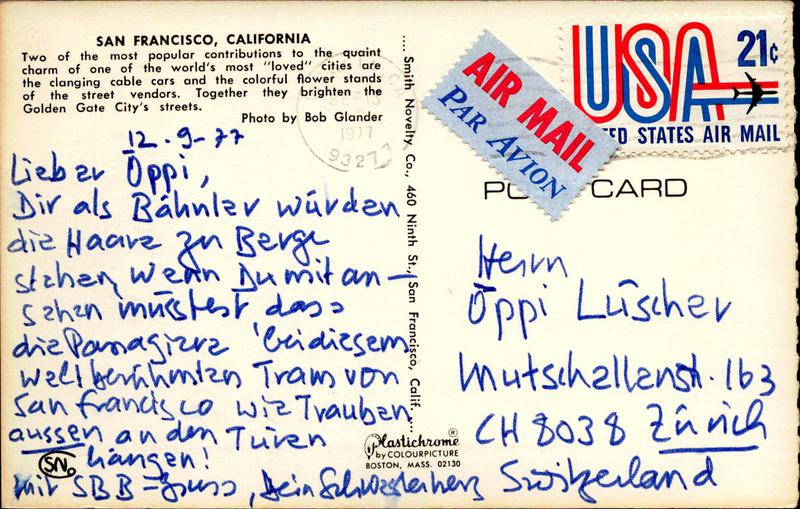 SAN FRANCISCO, CALIFORNIA
Two of the most popular contributions to the quaint
charm of one of the world's most "loved" cities are
the clanging cable cars and the colorful flower stands
of the street vendors. Together they brighten the
Golden Gate City's streets.
Photo by Bob Glander
12.9-77
Lieber Öppi,
Dir als Bähnler würden
die Haare zu Berge
stehen, wenn Du mit an-
sehen müsstest dass
die Passagiere bei diesem
weltberühmten Tram von
San Francisco wie Trauben
aussen an den Türen
hängen!
Mit SBB-Gruss, Dein Schwesterherz
SN
.... Smith Novelty Co., 460 Ninth St., San Francisco, Calif. ....
SEP 13
1977
93277
AIR MAIL
PAR AVION
USA 21¢
UNITED STATES AIR MAIL
POST CARD
Herrn
Öppi Lüscher
Mutschellenstr. 163
CH 8038 Zürich
Switzerland
Plastichrome®
by COLOURPICTURE
BOSTON, MASS. 02130